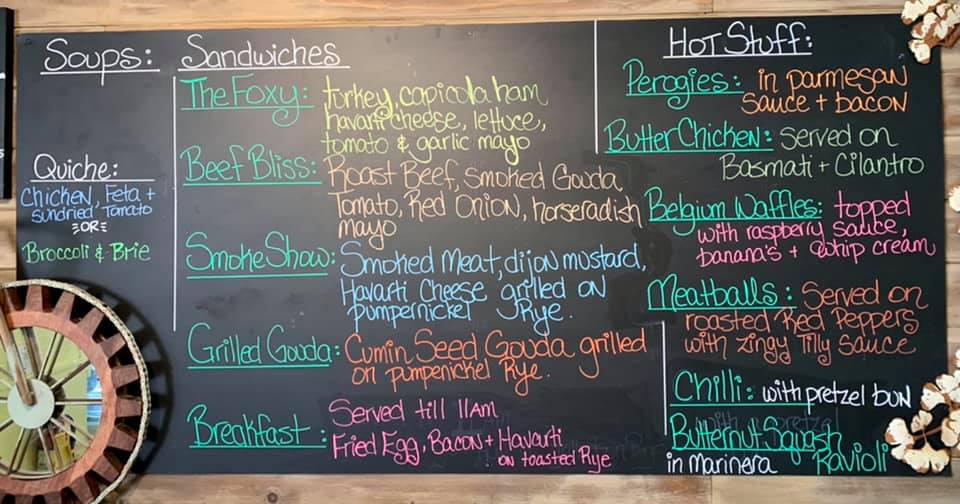 Soups:
Quiche:
Chicken, Feta +
Sundried Tomato
OR
Broccoli & Brie
Sandwiches
The Foxy: turkey, capicola ham
havarti cheese, lettuce,
tomato & garlic mayo
Beef Bliss: Roast Beef, Smoked Gouda,
Tomato, Red Onion, horseradish
mayo
Smoke Show: Smoked Meat, dijon mustard,
Havarti Cheese grilled on
pumpernickel Rye.
Grilled Gouda: Cumin Seed Gouda grilled
on pumpenickel Rye.
Breakfast: Served till 11AM
Fried Egg, Bacon + Havarti
on toasted Rye
Hot Stuff:
Perogies: in parmesan
sauce + bacon
Butter Chicken: served on
Basmati + Cilantro
Belgium Waffles: topped
with raspberry sauce,
banana's + whip cream
Meatballs: Served on
roasted Red Peppers
with zingy Tilly Sauce
Chilli: with pretzel bun
Butternut Squash
in Marinera Ravioli